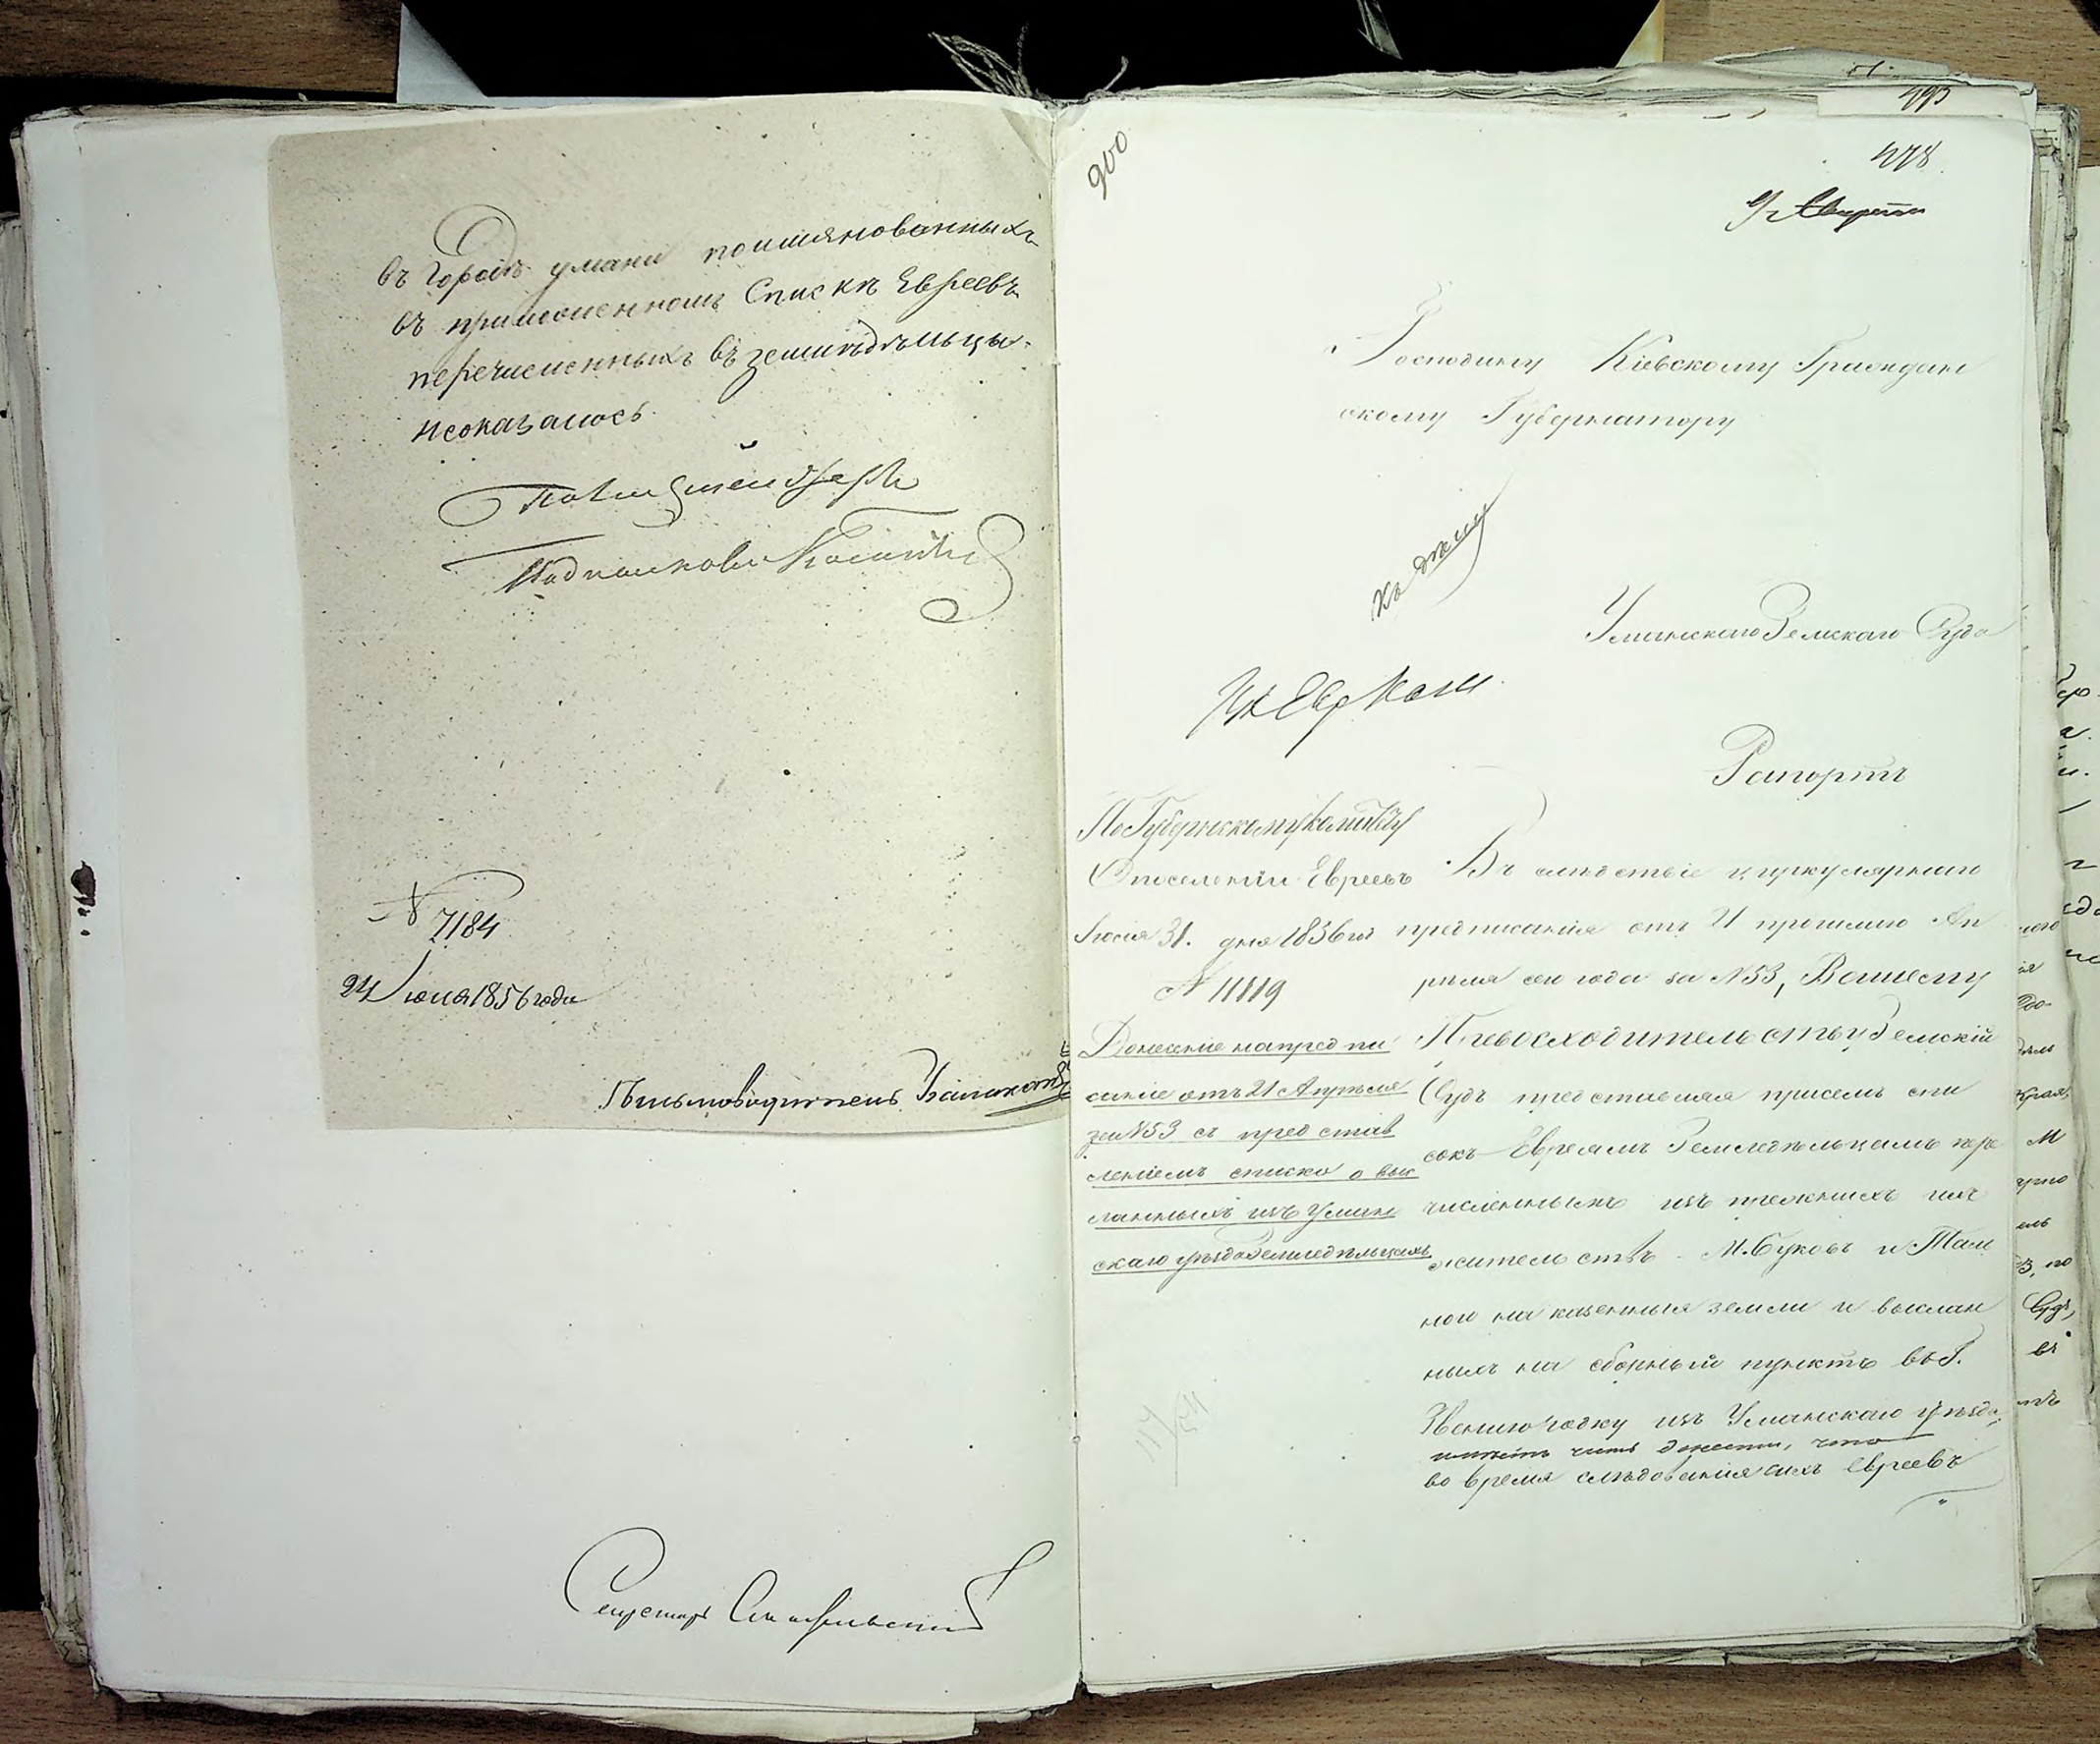 въ Городѣ умани поимянованныхъ
въ приложенномъ Спискѣ Евреевъ
перечисленныхъ въ земледѣльцы
неоказалось.
Полицмейстеръ
Подполковн
№ 7184
24 июня 1856 года
Письмоводитель
Секретарь
495
478
900
Господину Кіевскому Граждан
скому Губернатору
Къ дѣлу
Уманскаго Земскаго Суда
Рапортъ
По Губернскому Комитету
О поселеніи Евреевъ
31. дня 1856 го
№ 11119
Донесеніе на предпи
саніе отъ 21 Апрѣля
за №53 съ представ
леніемъ списка о выс
ланныхъ изъ Уман
скаго уѣзда Земледѣльцахъ
Въ слѣдствіе циркулярнаго
предписанія отъ 21 прошлаго Ап
рѣля сего года за №53, Вашему
Превосходительству Земскій
Судъ представляя присемъ спи
сокъ Евреямъ Земледѣльцамъ пере
численнымъ изъ прежнихъ ихъ
жительствъ М. Буковъ и Таль
ного на казенныя земли и выслан
ныхъ на сборный пунктъ въ Г.
Звенигородку изъ Уманскаго уѣзда,
имѣетъ честь донести, что
во время слѣдованія сихъ Евреевъ